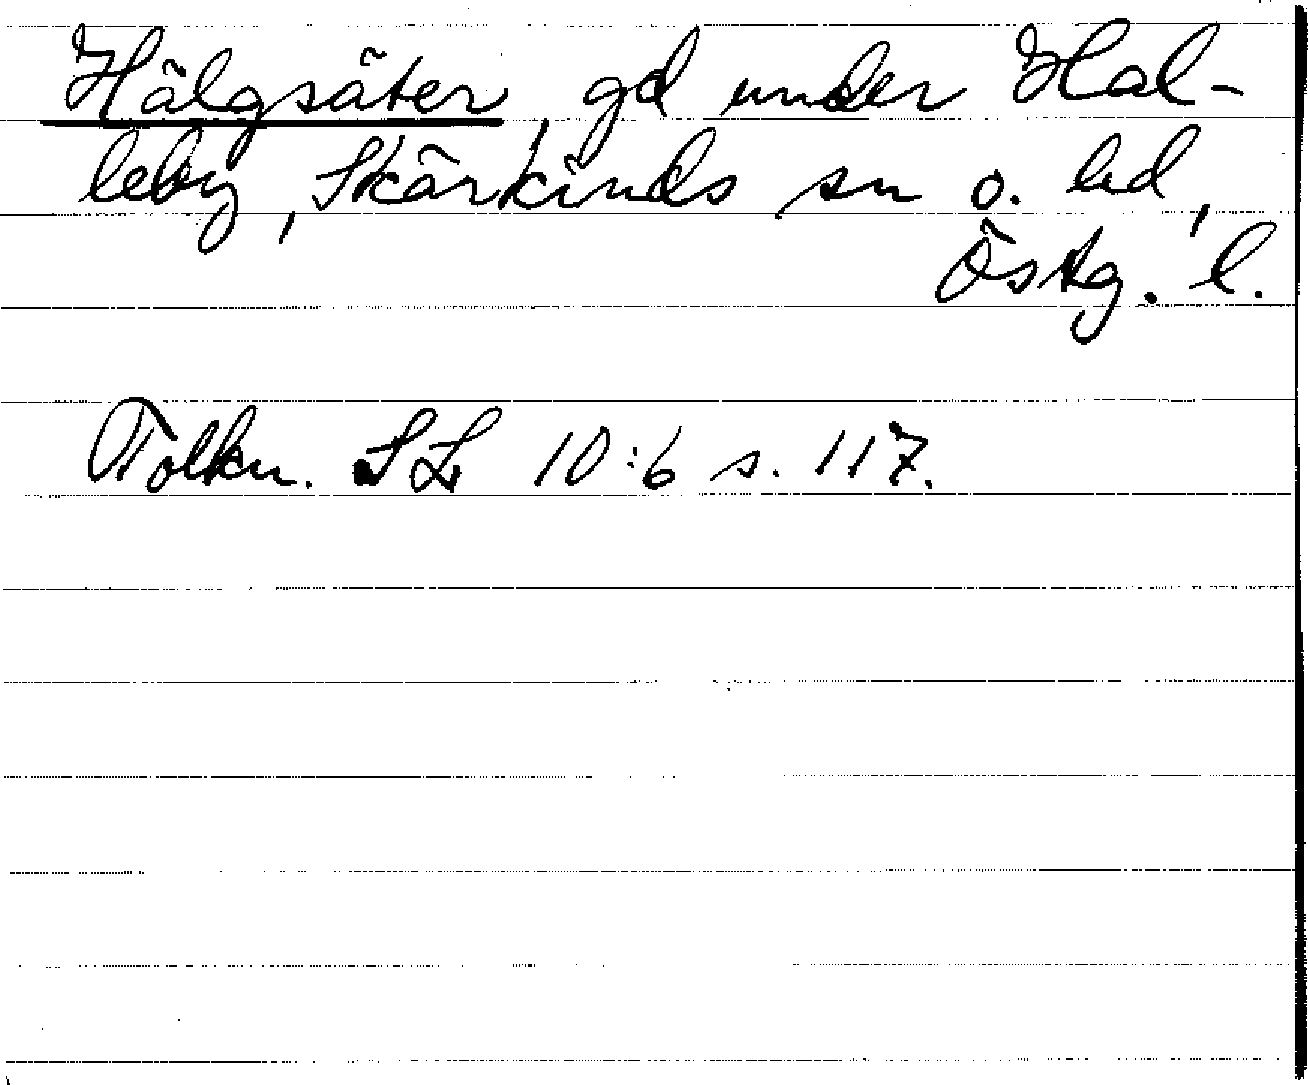 Hälgsäter, gd under Hal-
leby, Skärkinds sn o. hd,
Östg. l.
Tolkn. SL 10:6 s. 117.